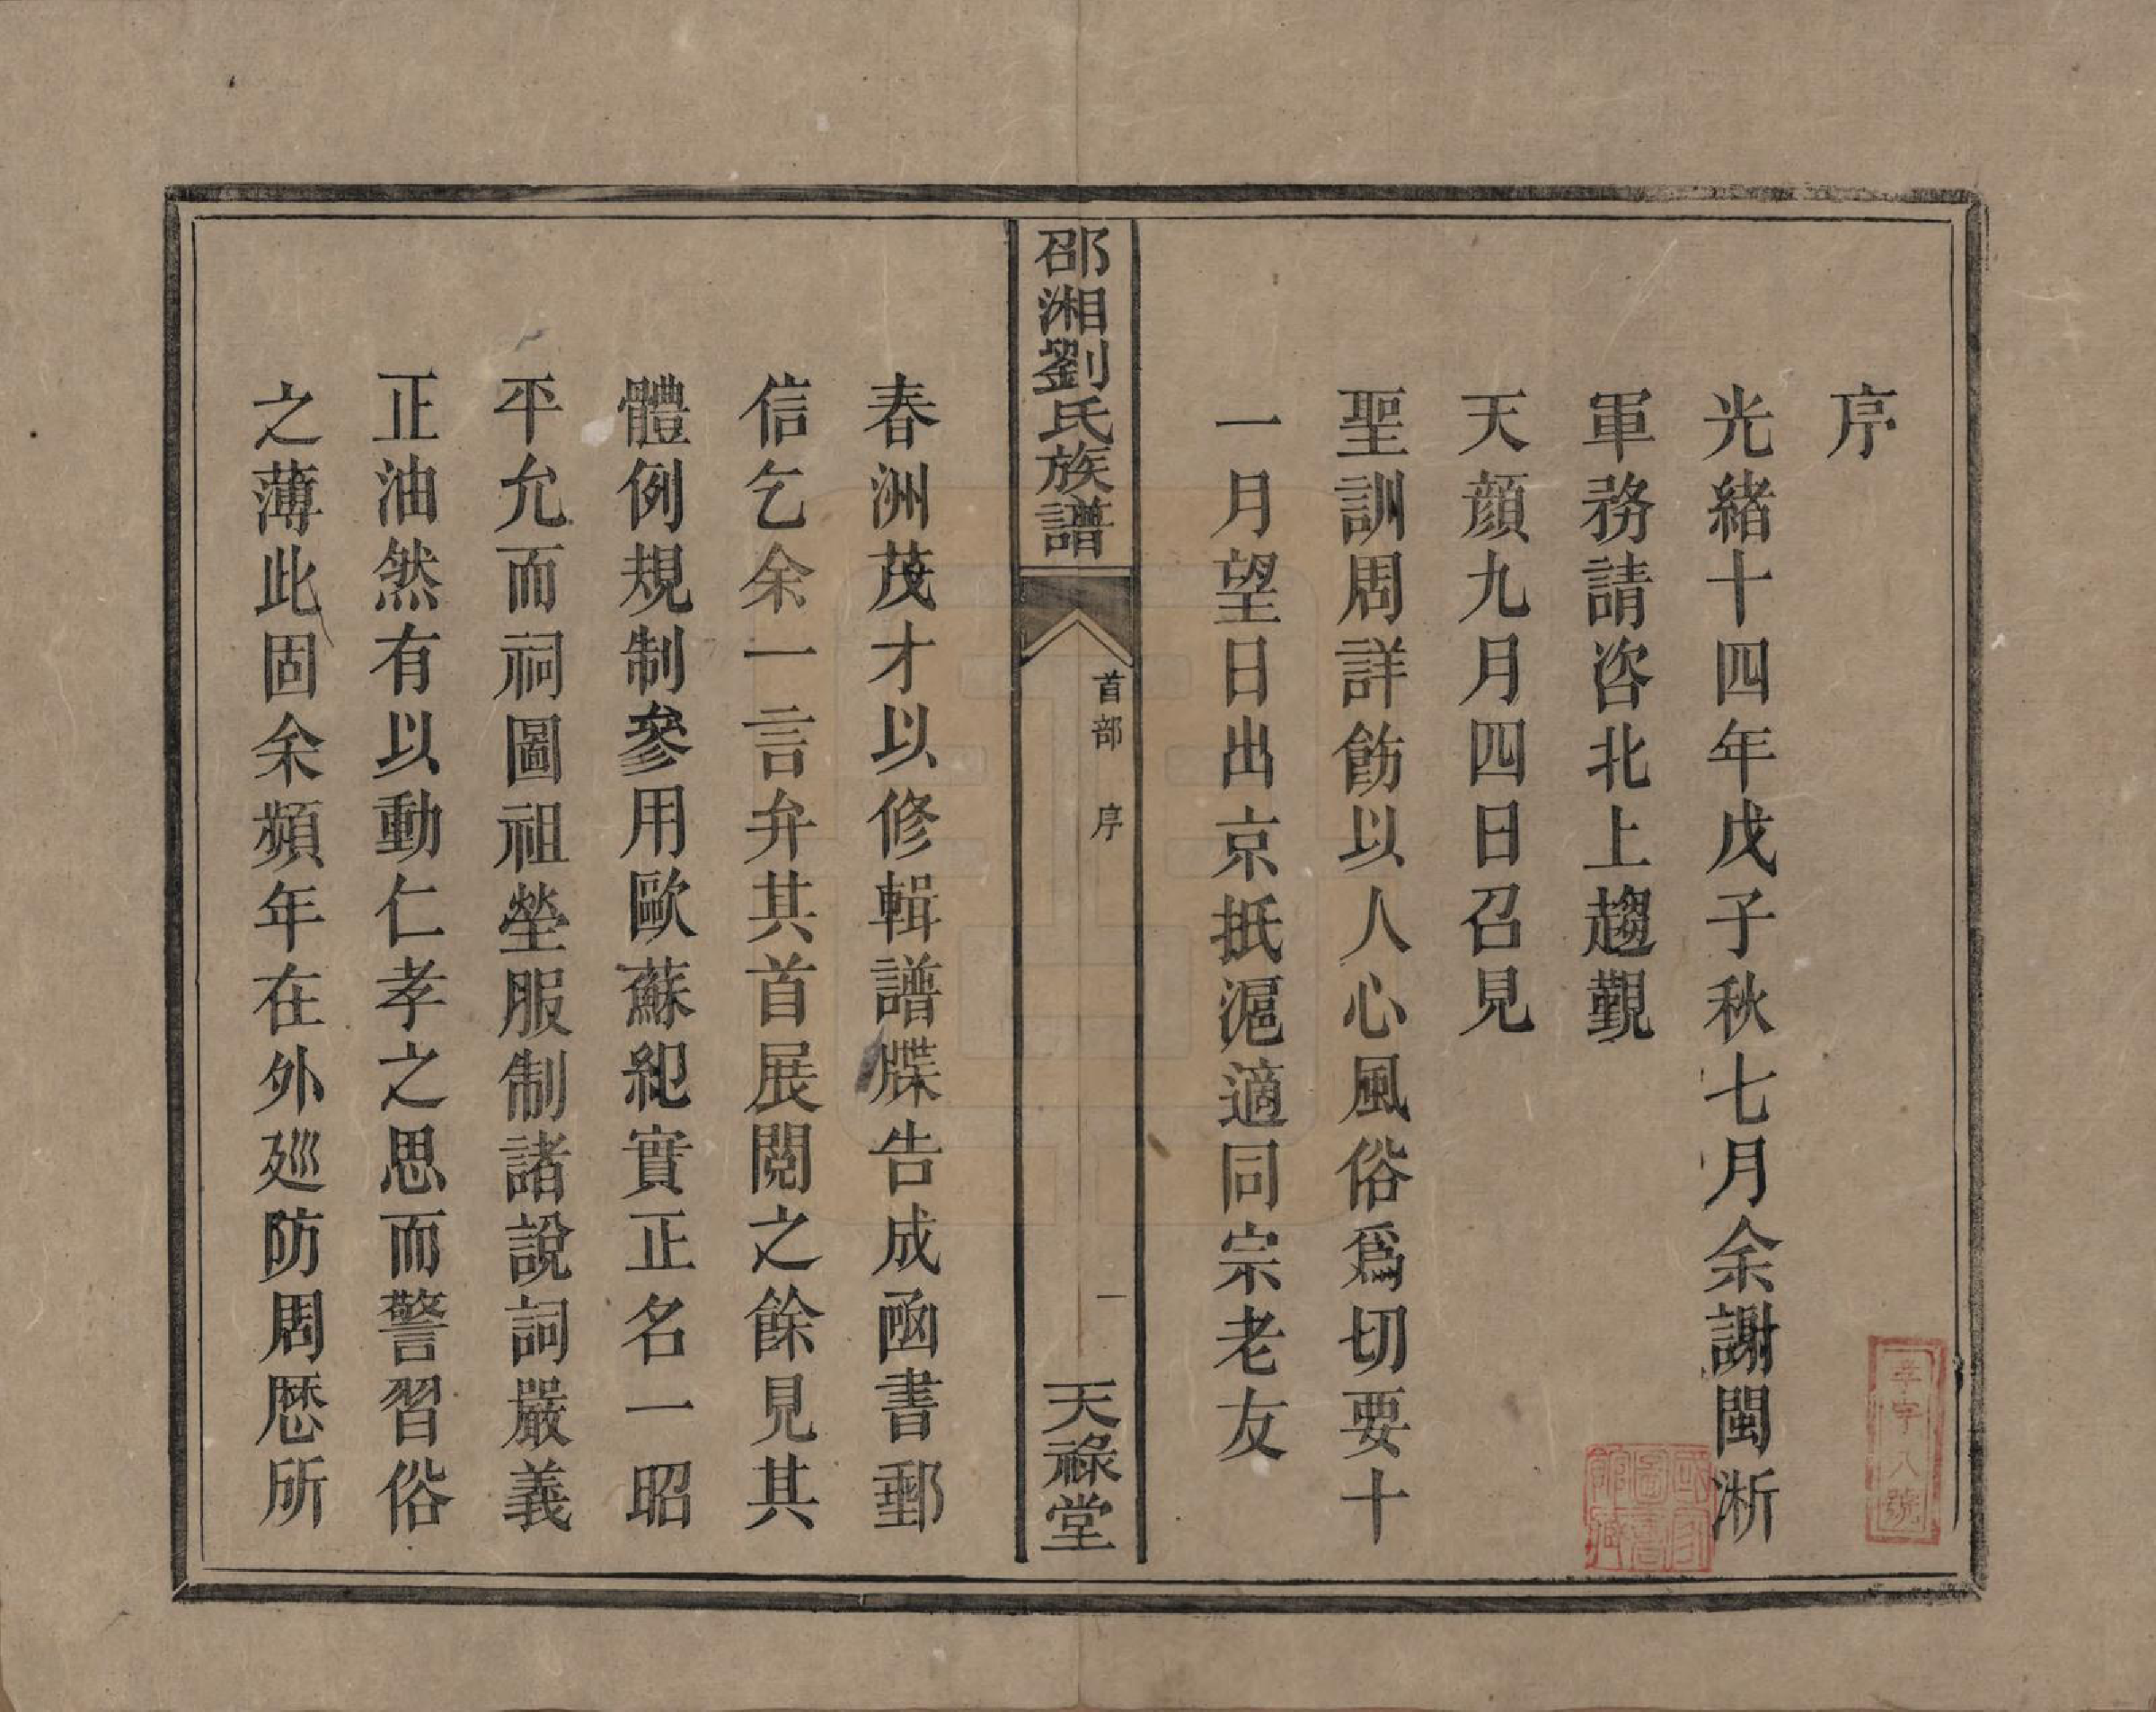 序
光緒十四年戊子秋七月余謝閩淅
軍務請咨北上趨覲
天顔九月四日召見
聖訓周詳飭以人心風俗爲切要十
一月望日出京抵滬適同宗老友
邵湘劉氏族譜
首部 序
一
天祿堂
春洲茂才以修輯譜牒告成函書郵
信乞余一言弁其首展閱之餘見其
體例規制參用歐蘇紀實正名一昭
平允而祠圖祖塋服制諸說詞嚴義
正油然有以動仁孝之思而警習俗
之薄此固余頻年在外廵防周歷所
國家圖書館藏